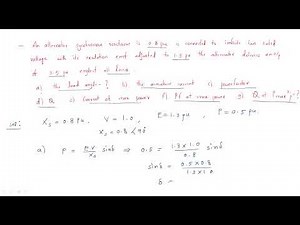 An alternator synchronous reactance is 0.8 pu is connected to infinite bus rated
voltage with its excitation emf adjusted to 1.3 pu the alternator delivers
of 0.5 pu neglect all losses
a) the load angle ? b) the armature current c) powerfactor
d) Q e) current at max power f) Pf at max power g) Q at
Xs = 0.8 pu, V = 1.0, E = 1.3 pu, P = 0.5 pu.
Xs = 0.8 ∠90
a) P = EV/Xs sinδ ⇒ 0.5 = 1.3 x 1.0/0.8 sinδ
sinδ = 0.5 x 0.8/1.3 x 1.0
δ =